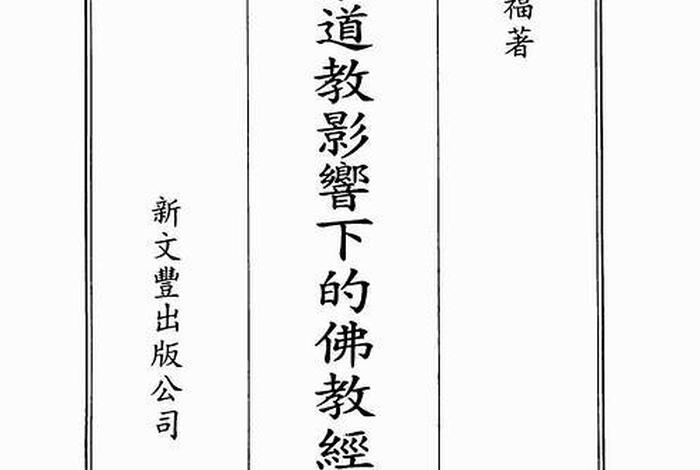 福著
道教影響下的佛教經
新文豐出版公司